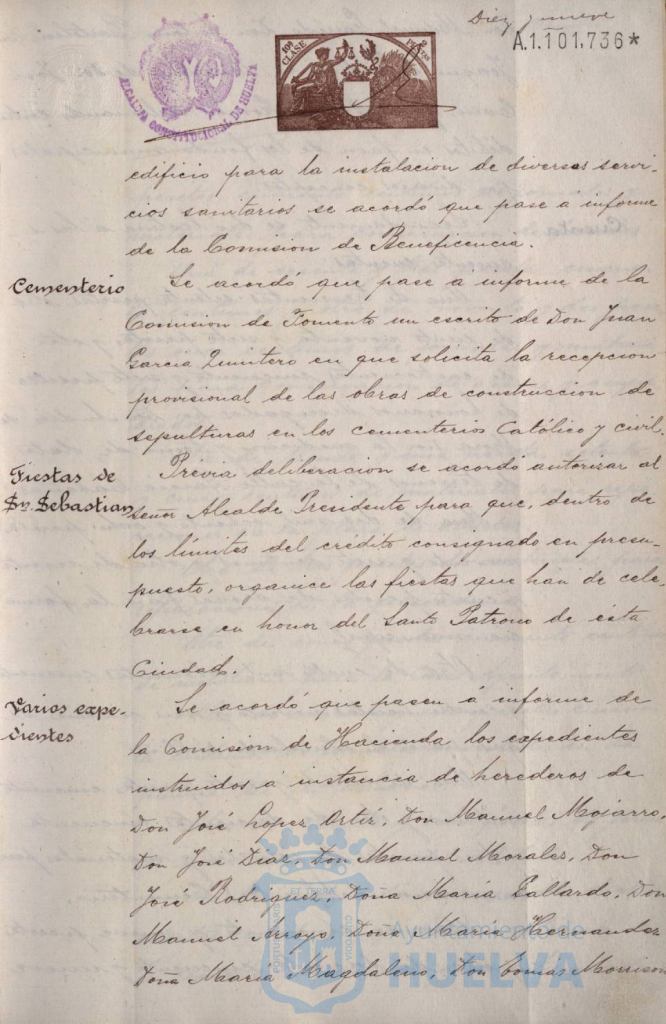 Diez y nueve
A.1.101,736*
ALCALDIA CONSTITUCIONAL DE HUELVA
10ª CLASE
2 PESETAS
edificio para la instalacion de diversos servi-
cios sanitarios se acordó que pase á informe
de la Comision de Beneficencia.
Cementerio
Se acordó que pase a informe de la
Comision de Fomento un escrito de Don Juan
Garcia Quintero en que solicita la recepcion
provisional de las obras de construccion de
sepulturas en los cementerios Católico y civil.
Fiestas de
Sn. Sebastian
Previa deliberacion se acordó autorizar al
señor Alcalde Presidente para que, dentro de
los límites del crédito consignado en presu-
puesto, organice las fiestas que han de cele-
brarse en honor del Santo Patrono de ésta
Ciudad.
Varios expe-
dientes
Se acordó que pasen á informe de
la Comision de Hacienda los expedientes
instruidos á instancia de herederos de
Don José Lopez Ortiz, Don Manuel Mojarro,
Don José Diaz, Don Manuel Morales, Don
José Rodriguez, Doña Maria Gallardo, Don
Manuel Arroyo, Doña Maria Hernandez
Doña Maria Magdaleno, Don Tomas Morrison
Ayuntamiento de
HUELVA